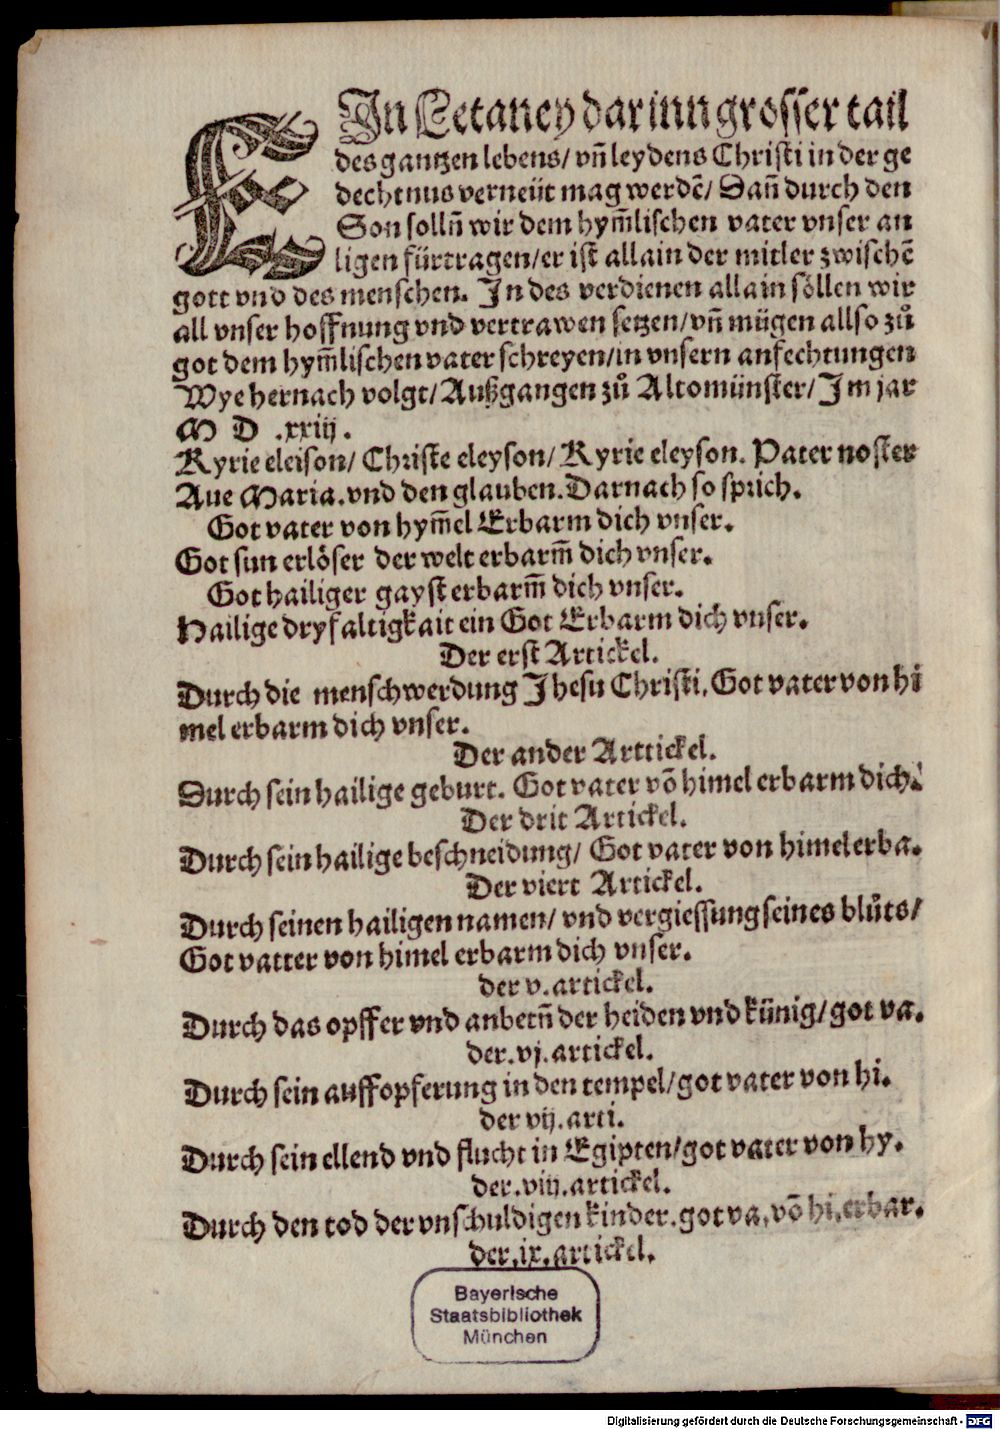 EIn Letaney darinn grosser tail
des gantzen lebens/ vn̄ leydens Christi in der ge
dechtnus verneüt mag werdē/ Dan̄ durch den
Son solln̄ wir dem hym̄lischen vater vnser an
ligen fürtragen/ er ist allain der mitler zwischē
gott vnd des menschen. In des verdienen allain söllen wir
all vnser hoffnung vnd vertrawen setzen/ vn̄ mügen allso zů
got dem hym̄lischen vater schreyen/ in vnsern anfechtungen
Wye hernach volgt/ Außgangen zů Altomünster/ Im jar
M D .xxiij.
Kyrie eleison/ Christe eleyson/ Kyrie eleyson. Pater noster
Aue Maria. vnd den glauben. Darnach so sprich.
Got vater von hym̄el Erbarm dich vnser.
Got sun erlöser der welt erbarm̄ dich vnser.
Got hailiger gayst erbarm̄ dich vnser.
Hailige dryfaltigkait ein Got Erbarm dich vnser.
Der erst Artickel.
Durch die menschwerdung Jhesu Christi. Got vater von hi
mel erbarm dich vnser.
Der ander Arttickel.
Durch sein hailige geburt. Got vater vō himel erbarm dich.
Der drit Artickel.
Durch sein hailige beschneidung/ Got vater von himel erba.
Der viert Artickel.
Durch seinen hailigen namen/ vnd vergiessung seines blůts/
Got vatter von himel erbarm dich vnser.
der v. artickel.
Durch das opffer vnd anbetn̄ der heiden vnd künig/ got va.
der .vj. artickel.
Durch sein auffopferung in den tempel/ got vater von hi.
der vij. arti.
Durch sein ellend vnd flucht in Egipten/ got vater von hy.
der .viij. artickel.
Durch den tod der vnschuldigen kinder. got va. vō hi. erbar.
der .ix. artickel.
Bayerische
Staatsbibliothek
München
Digitalisierung gefördert durch die Deutsche Forschungsgemeinschaft - DFG